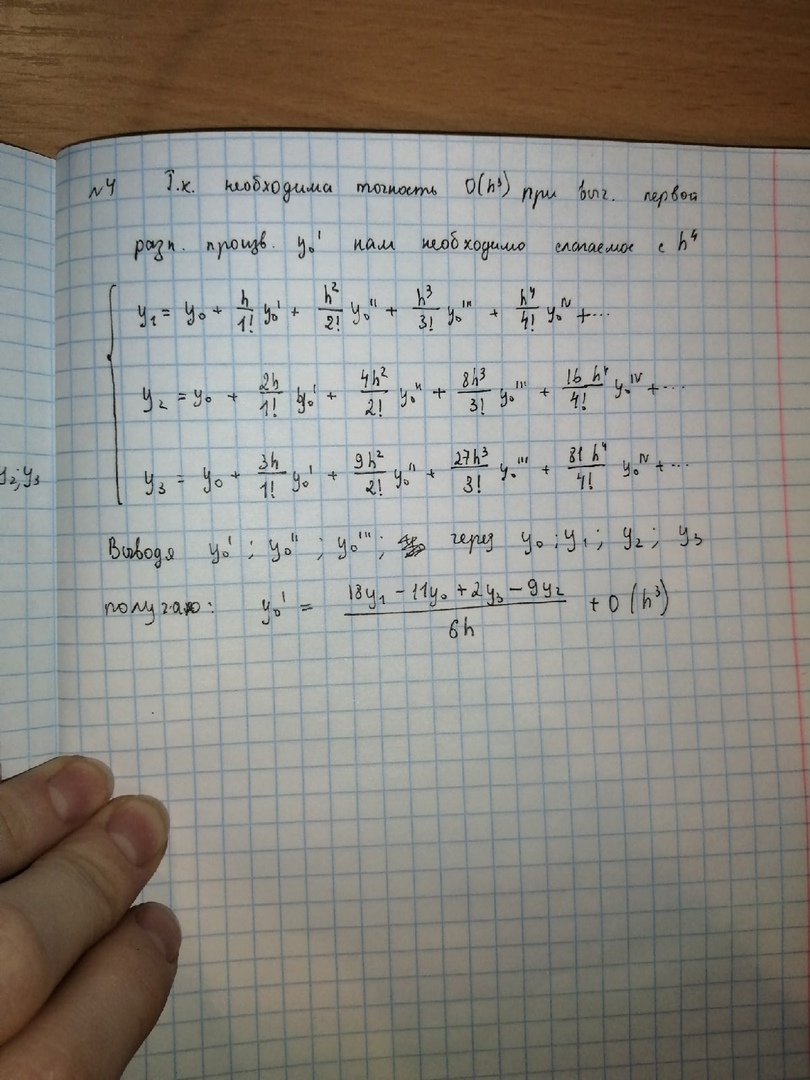 №4 Т.к. необходима точность O(h³) при выч. первой
разн. произв. y₀' нам необходимо слагаемое с h⁴
y₁ = y₀ + h/1! y₀' + h²/2! y₀'' + h³/3! y₀''' + h⁴/4! y₀ᴵⱽ + ...
y₂ = y₀ + 2h/1! y₀' + 4h²/2! y₀'' + 8h³/3! y₀''' + 16h⁴/4! y₀ᴵⱽ + ...
y₂; y₃
y₃ = y₀ + 3h/1! y₀' + 9h²/2! y₀'' + 27h³/3! y₀''' + 81h⁴/4! y₀ᴵⱽ + ...
Выводя y₀'; y₀''; y₀'''; через y₀; y₁; y₂; y₃
получаю: y₀' = (18y₁ - 11y₀ + 2y₃ - 9y₂)/6h + O(h³)